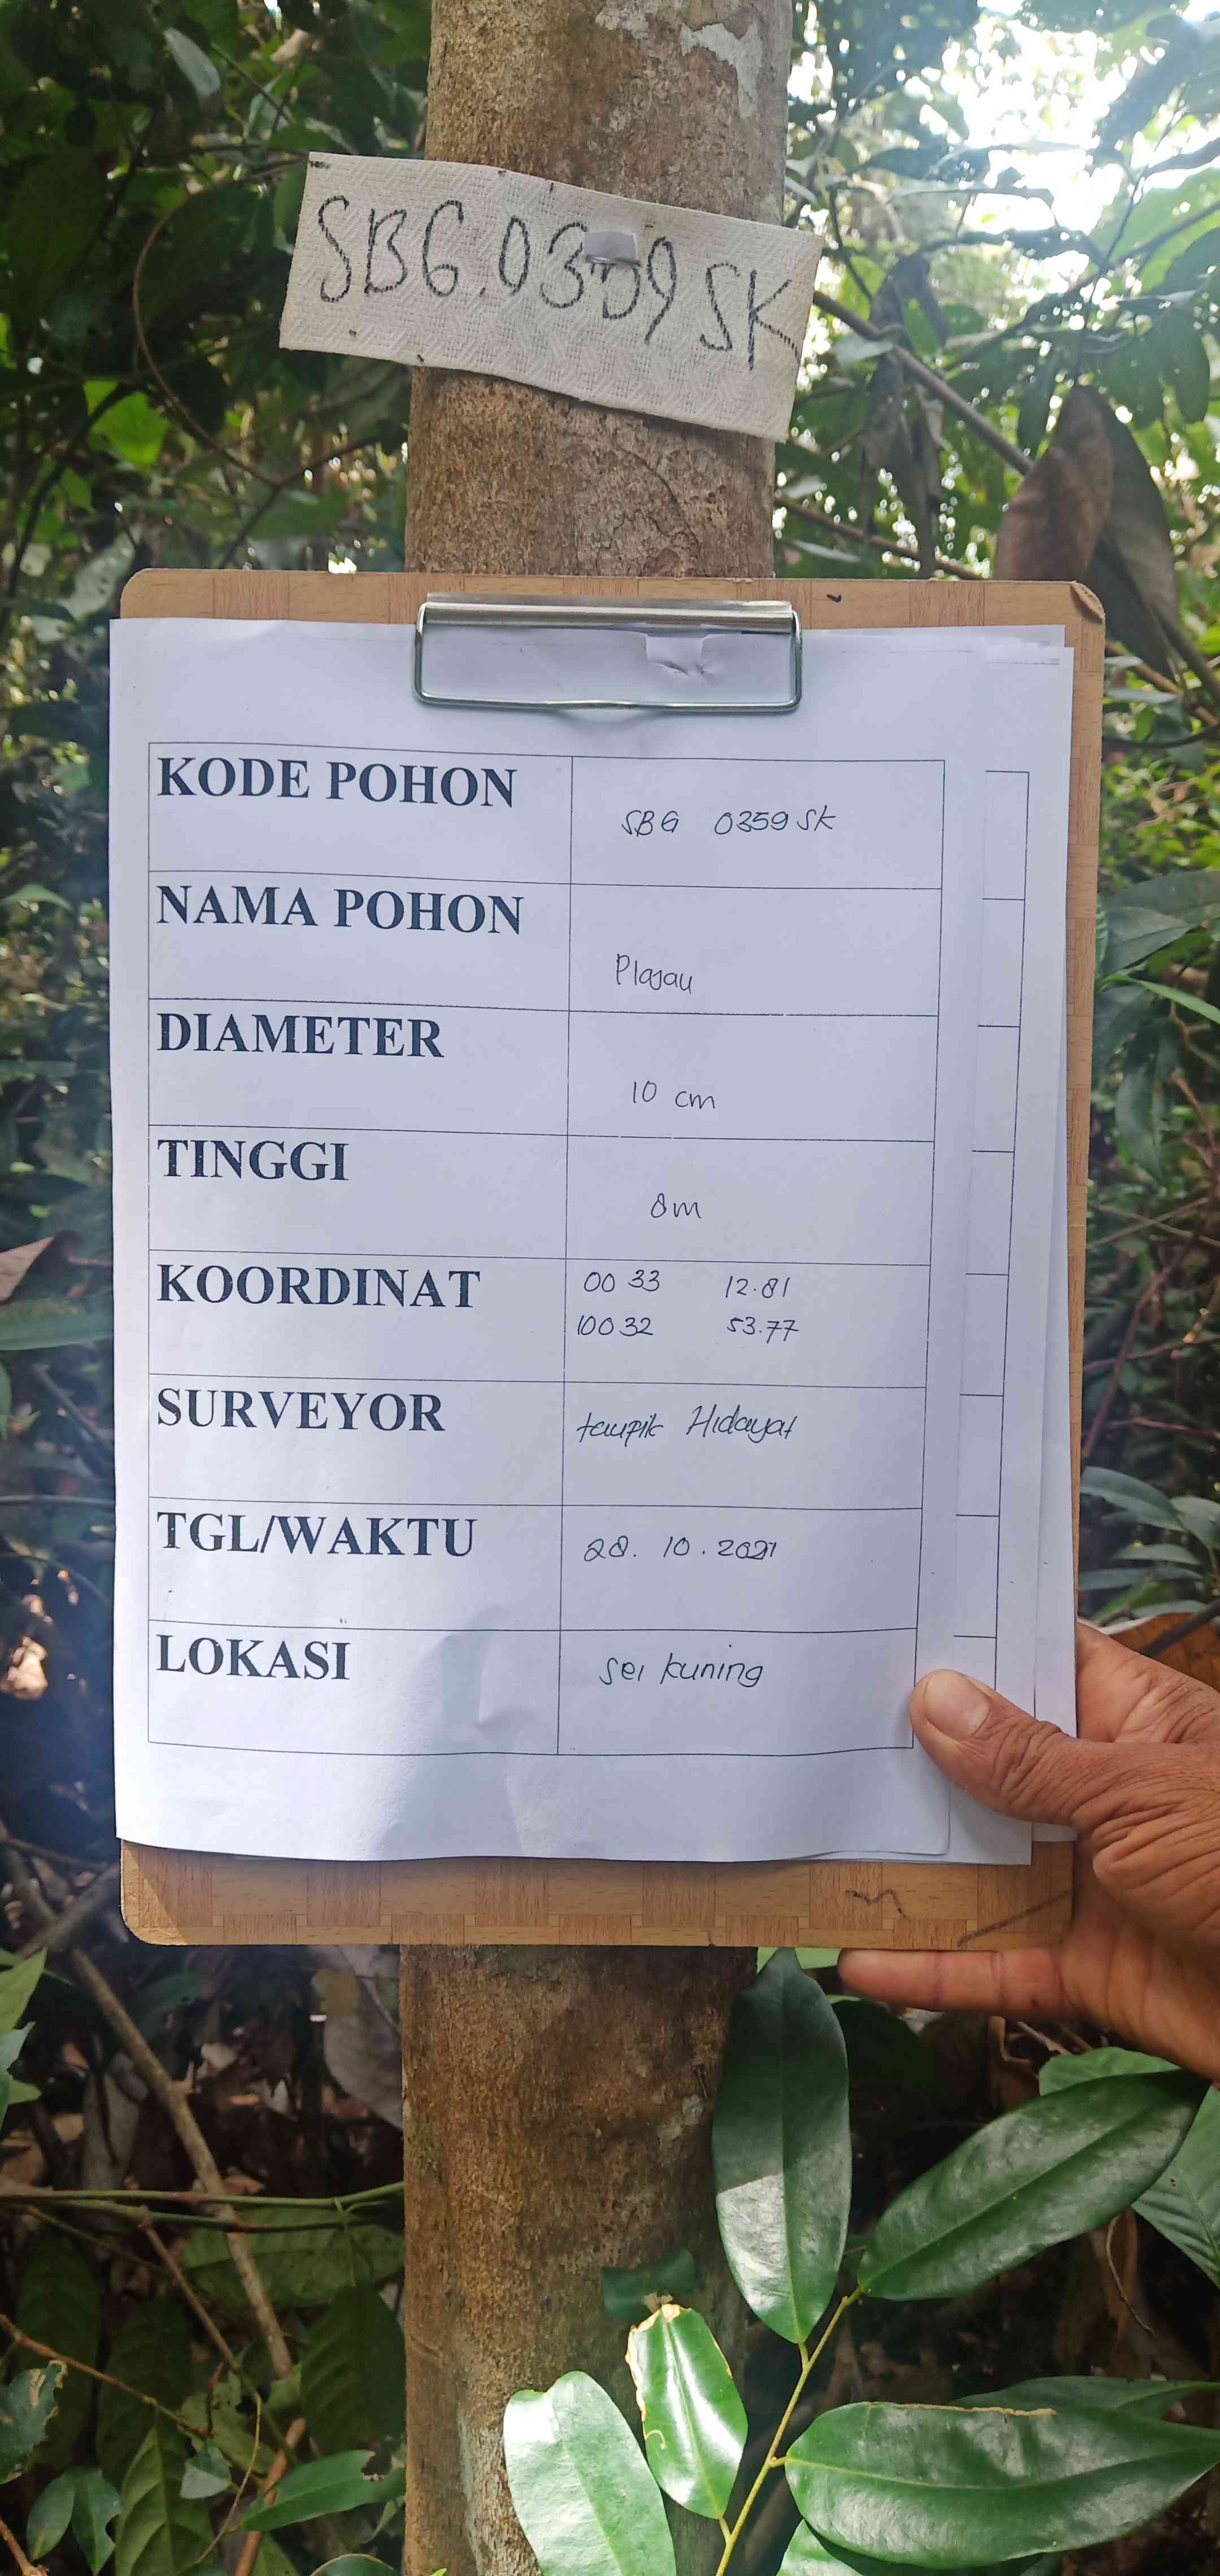 SBG.0359 SK
KODE POHON
SBG 0359 SK
NAMA POHON
Plajau
DIAMETER
10 cm
TINGGI
8m
KOORDINAT
00 33 12.81
100 32 53.77
SURVEYOR
taupik Hidayat
TGL/WAKTU
28. 10. 2021
LOKASI
Sei kuning